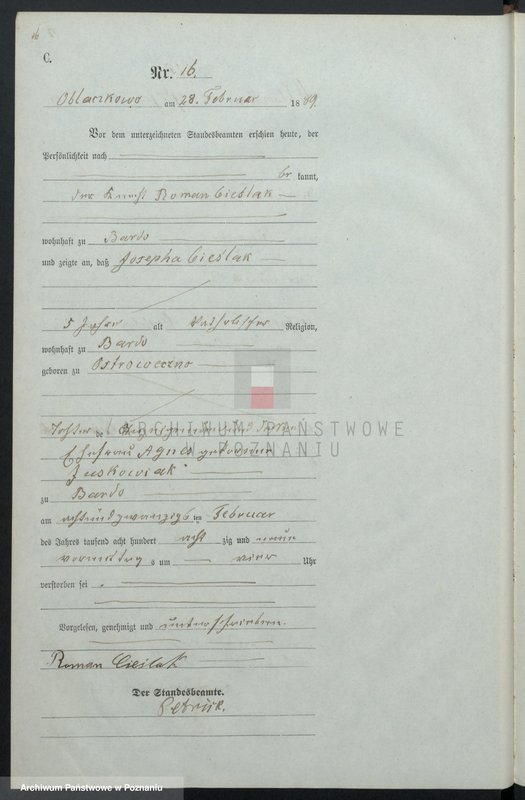 16
C.
Nr. 16.
Oblaczkowo am 28. Februar 1889.
Vor dem unterzeichneten Standesbeamten erschien heute, der
Persönlichkeit nach
be kannt,
der Knecht Roman Cieślak
wohnhaft zu Bardo
und zeigte an, daß Josepha Cieślak
5 Jahre alt katholischer Religion,
wohnhaft zu Bardo
geboren zu Ostroweczno
Tochter des
Ehefrau Agnes geborene
Juskowiak
zu Bardo
am achtundzwanzigsten Februar
des Jahres tausend acht hundert acht zig und neun
vormittag s um vier Uhr
verstorben sei
Vorgelesen, genehmigt und unterschrieben.
Roman Cieślak
Der Standesbeamte.
ARCHIWUM PAŃSTWOWE
POZNANIU
Archiwum Państwowe w Poznaniu